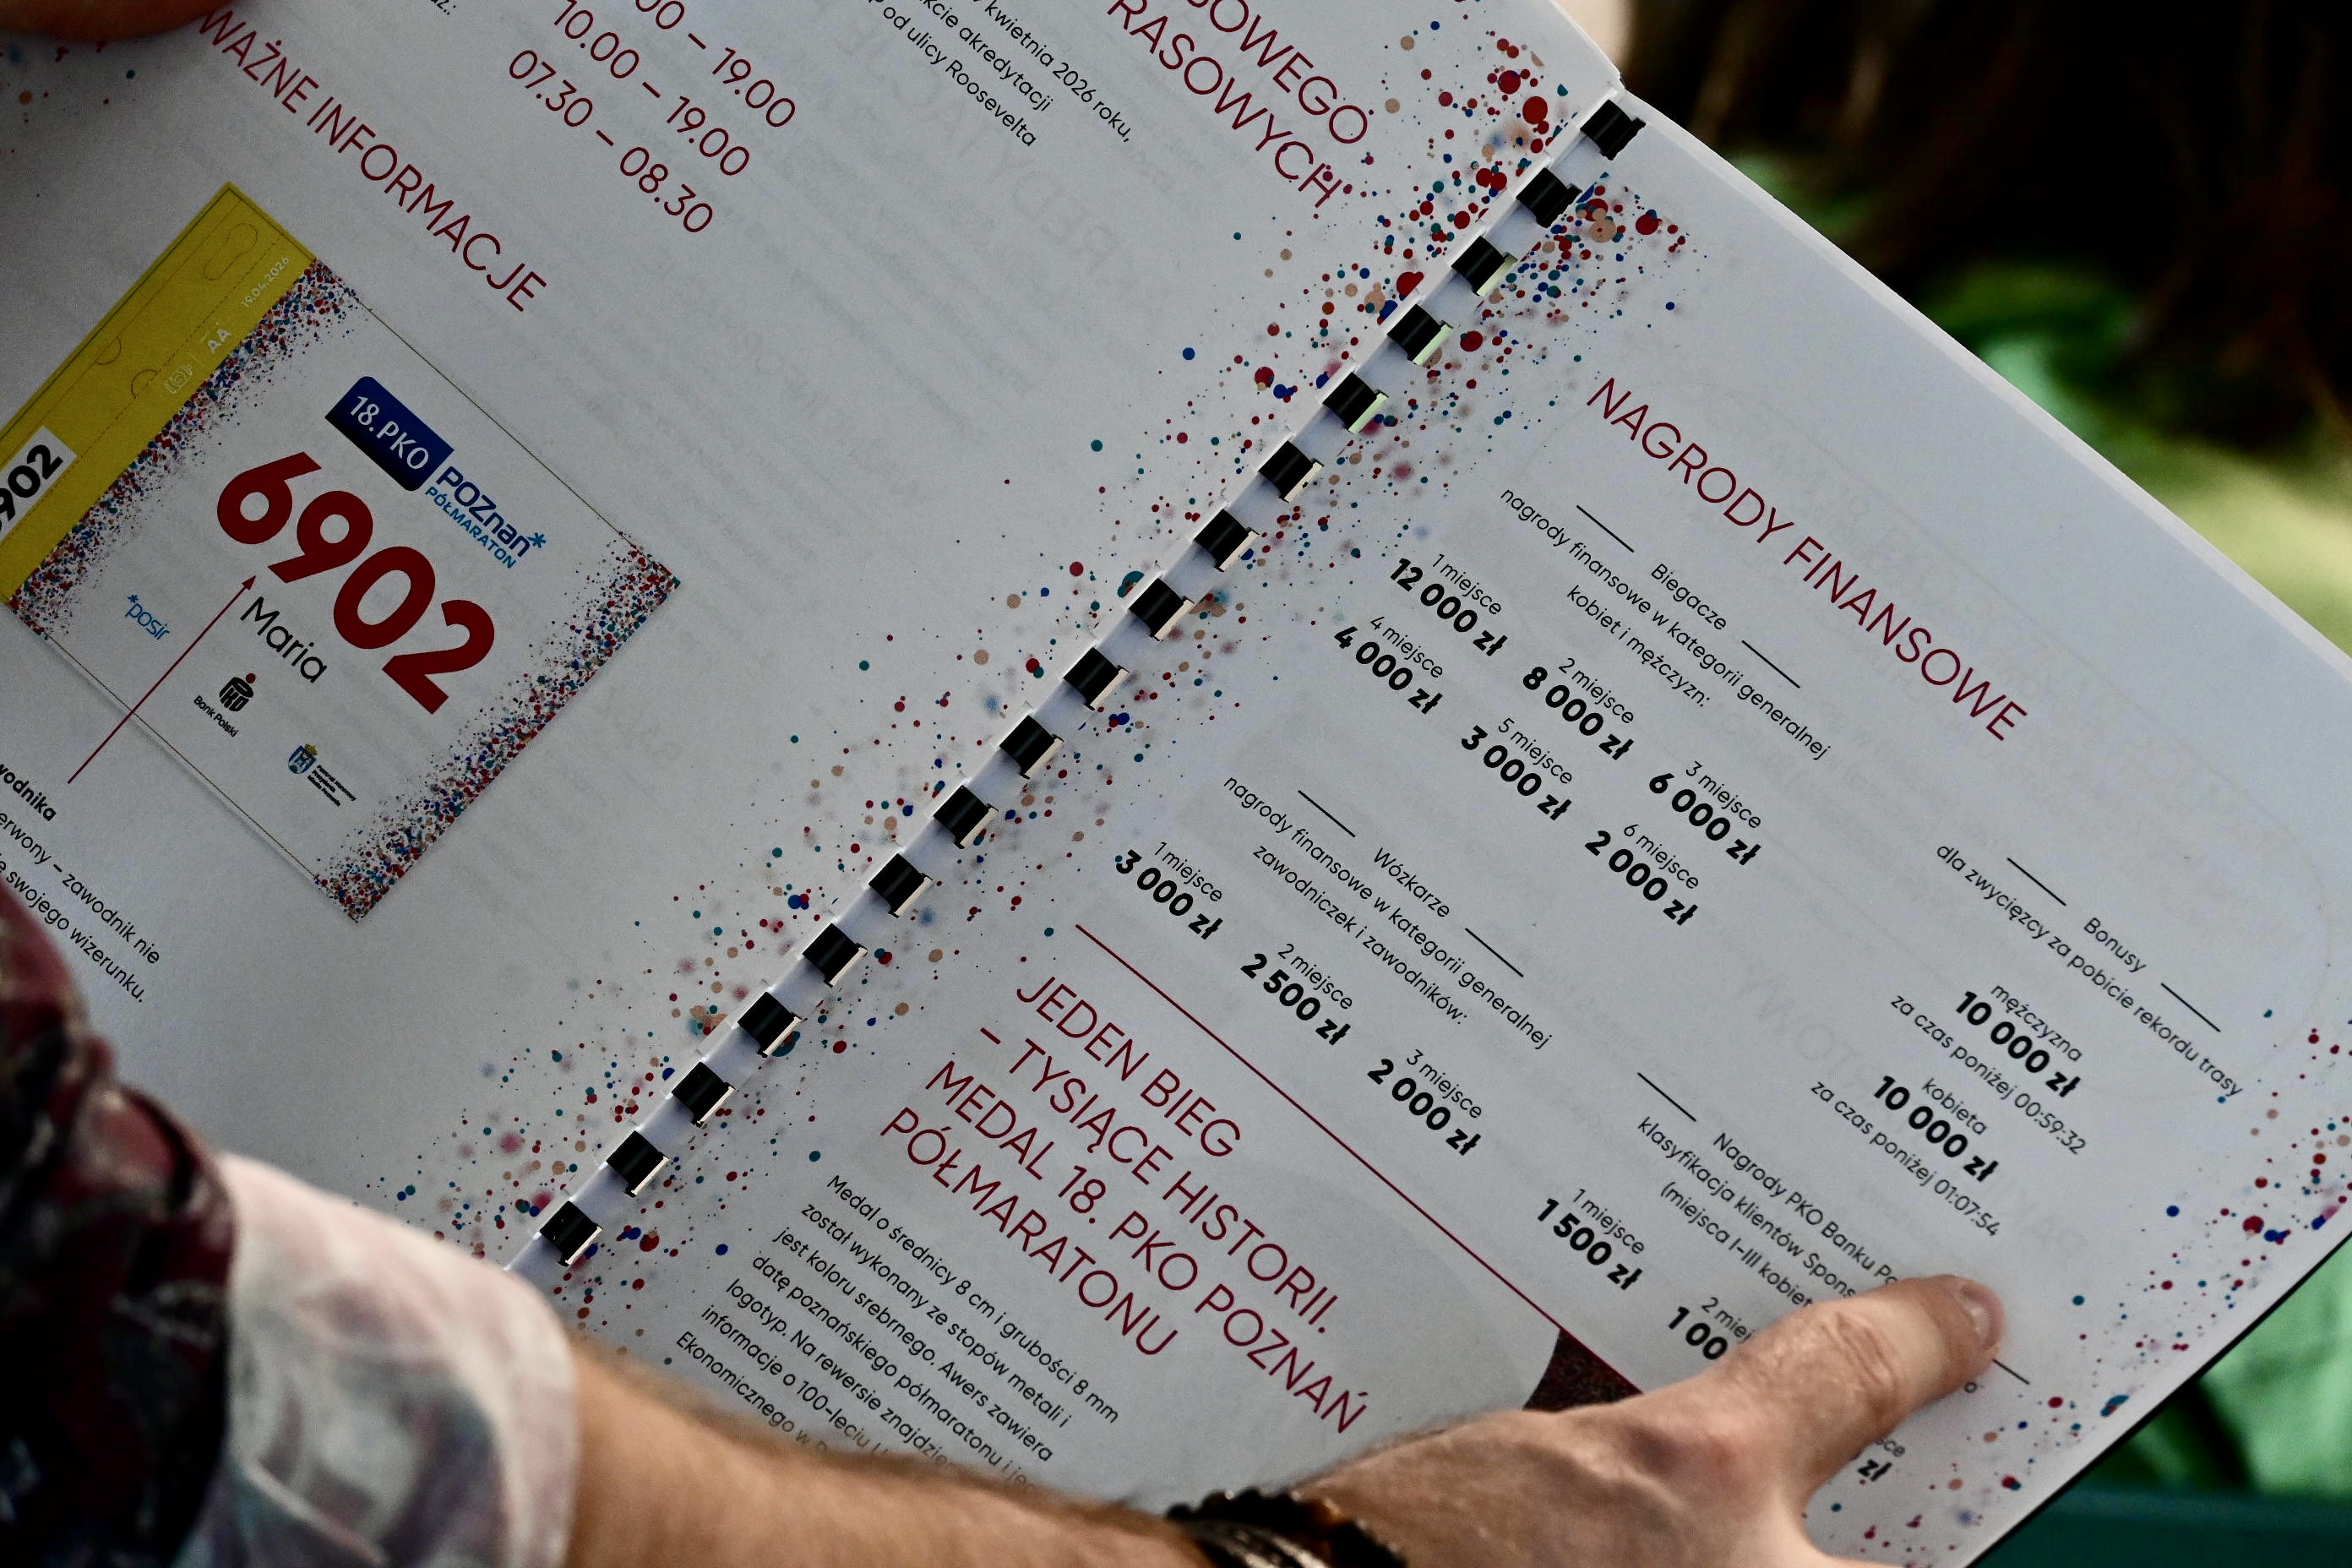 00 – 19.00
10.00 – 19.00
07.30 – 08.30
kwietnia 2026 roku,
akredytacji
od ulicy Roosevelta
SOWEGO
RASOWYCH
WAŻNE INFORMACJE
19.04.2026
AA
902
18.PKO
POZnan*
PÓŁMARATON
6902
Maria
*posir
Bank Polski
wodnika
erwony – zawodnik nie
swojego wizerunku.
NAGRODY FINANSOWE
Biegacze
nagrody finansowe w kategorii generalnej
kobiet i mężczyzn:
1 miejsce
12 000 zł
2 miejsce
8 000 zł
3 miejsce
6 000 zł
4 miejsce
4 000 zł
5 miejsce
3 000 zł
6 miejsce
2 000 zł
Wózkarze
nagrody finansowe w kategorii generalnej
zawodniczek i zawodników:
1 miejsce
3 000 zł
2 miejsce
2 500 zł
3 miejsce
2 000 zł
Bonusy
dla zwycięzcy za pobicie rekordu trasy
mężczyzna
10 000 zł
za czas poniżej 00:59:32
kobieta
10 000 zł
za czas poniżej 01:07:54
Nagrody PKO Banku Po
klasyfikacja klientów Spons
(miejsca I–III kobiet
1 miejsce
1 500 zł
2 miej
1 00
sce
zł
JEDEN BIEG
– TYSIĄCE HISTORII.
MEDAL 18. PKO POZNAŃ
PÓŁMARATONU
Medal o średnicy 8 cm i grubości 8 mm
został wykonany ze stopów metali i
jest koloru srebrnego. Awers zawiera
datę poznańskiego półmaratonu i je
logotyp. Na rewersie znajdzie
informacje o 100-leciu U
Ekonomicznego w P